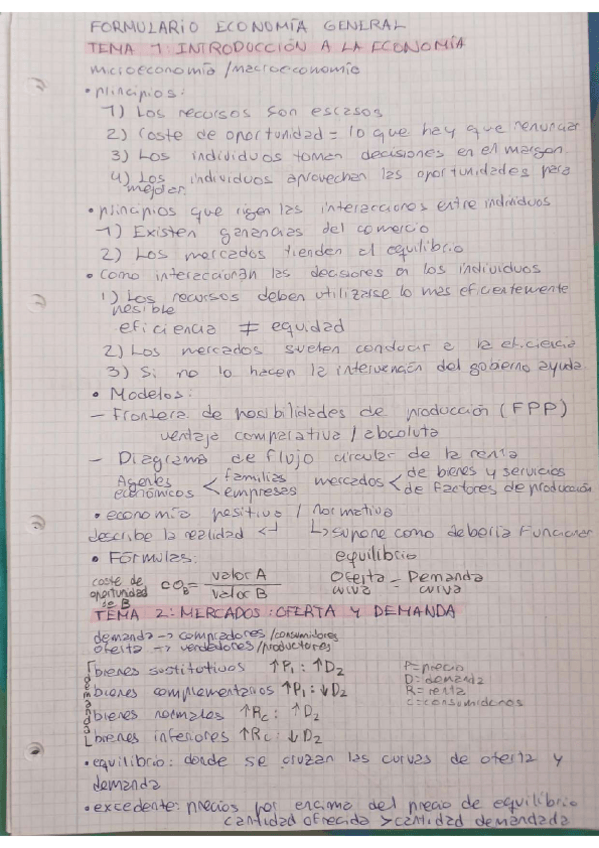 FORMULARIO ECONOMÍA GENERAL
TEMA 1: INTRODUCCIÓN A LA ECONOMÍA
microeconomía / macroeconomía
• principios:
1) Los recursos son escasos
2) Coste de oportunidad = lo que hay que renunciar
3) Los individuos toman decisiones en el margen
4) Los individuos aprovechan las oportunidades para
mejorar.
• principios que rigen las interacciones entre individuos
1) Existen ganancias del comercio
2) Los mercados tienden al equilibrio
• como interaccionan las decisiones en los individuos
1) Los recursos deben utilizarse lo mas eficientemente
posible
eficiencia ≠ equidad
2) Los mercados suelen conducir a la eficiencia
3) Si no lo hacen la intervención del gobierno ayuda
• Modelos:
– Frontera de posibilidades de producción (FPP)
ventaja comparativa / absoluta
– Diagrama de flujo circular de la renta
Agentes económicos < familias empresas mercados < de bienes y servicios de factores de producción
• economía positiva / normativa
describe la realidad ↵ ↳ supone como debería funcionar
• Fórmulas: equilibrio
coste de oportunidad de B CO_B = valor A / valor B Oferta = Demanda
curva curva
TEMA 2: MERCADOS: OFERTA Y DEMANDA
demanda → compradores / consumidores
oferta → vendedores / productores
demanda
bienes sustitutivos ↑P₁ : ↑D₂ P = precio
D = demanda
bienes complementarios ↑P₁ : ↓D₂ R = renta
c = consumidores
bienes normales ↑Rc : ↑D₂
bienes inferiores ↑Rc : ↓D₂
• equilibrio: donde se cruzan las curvas de oferta y
demanda
• excedente: precios por encima del precio de equilibrio
cantidad ofrecida > cantidad demandada